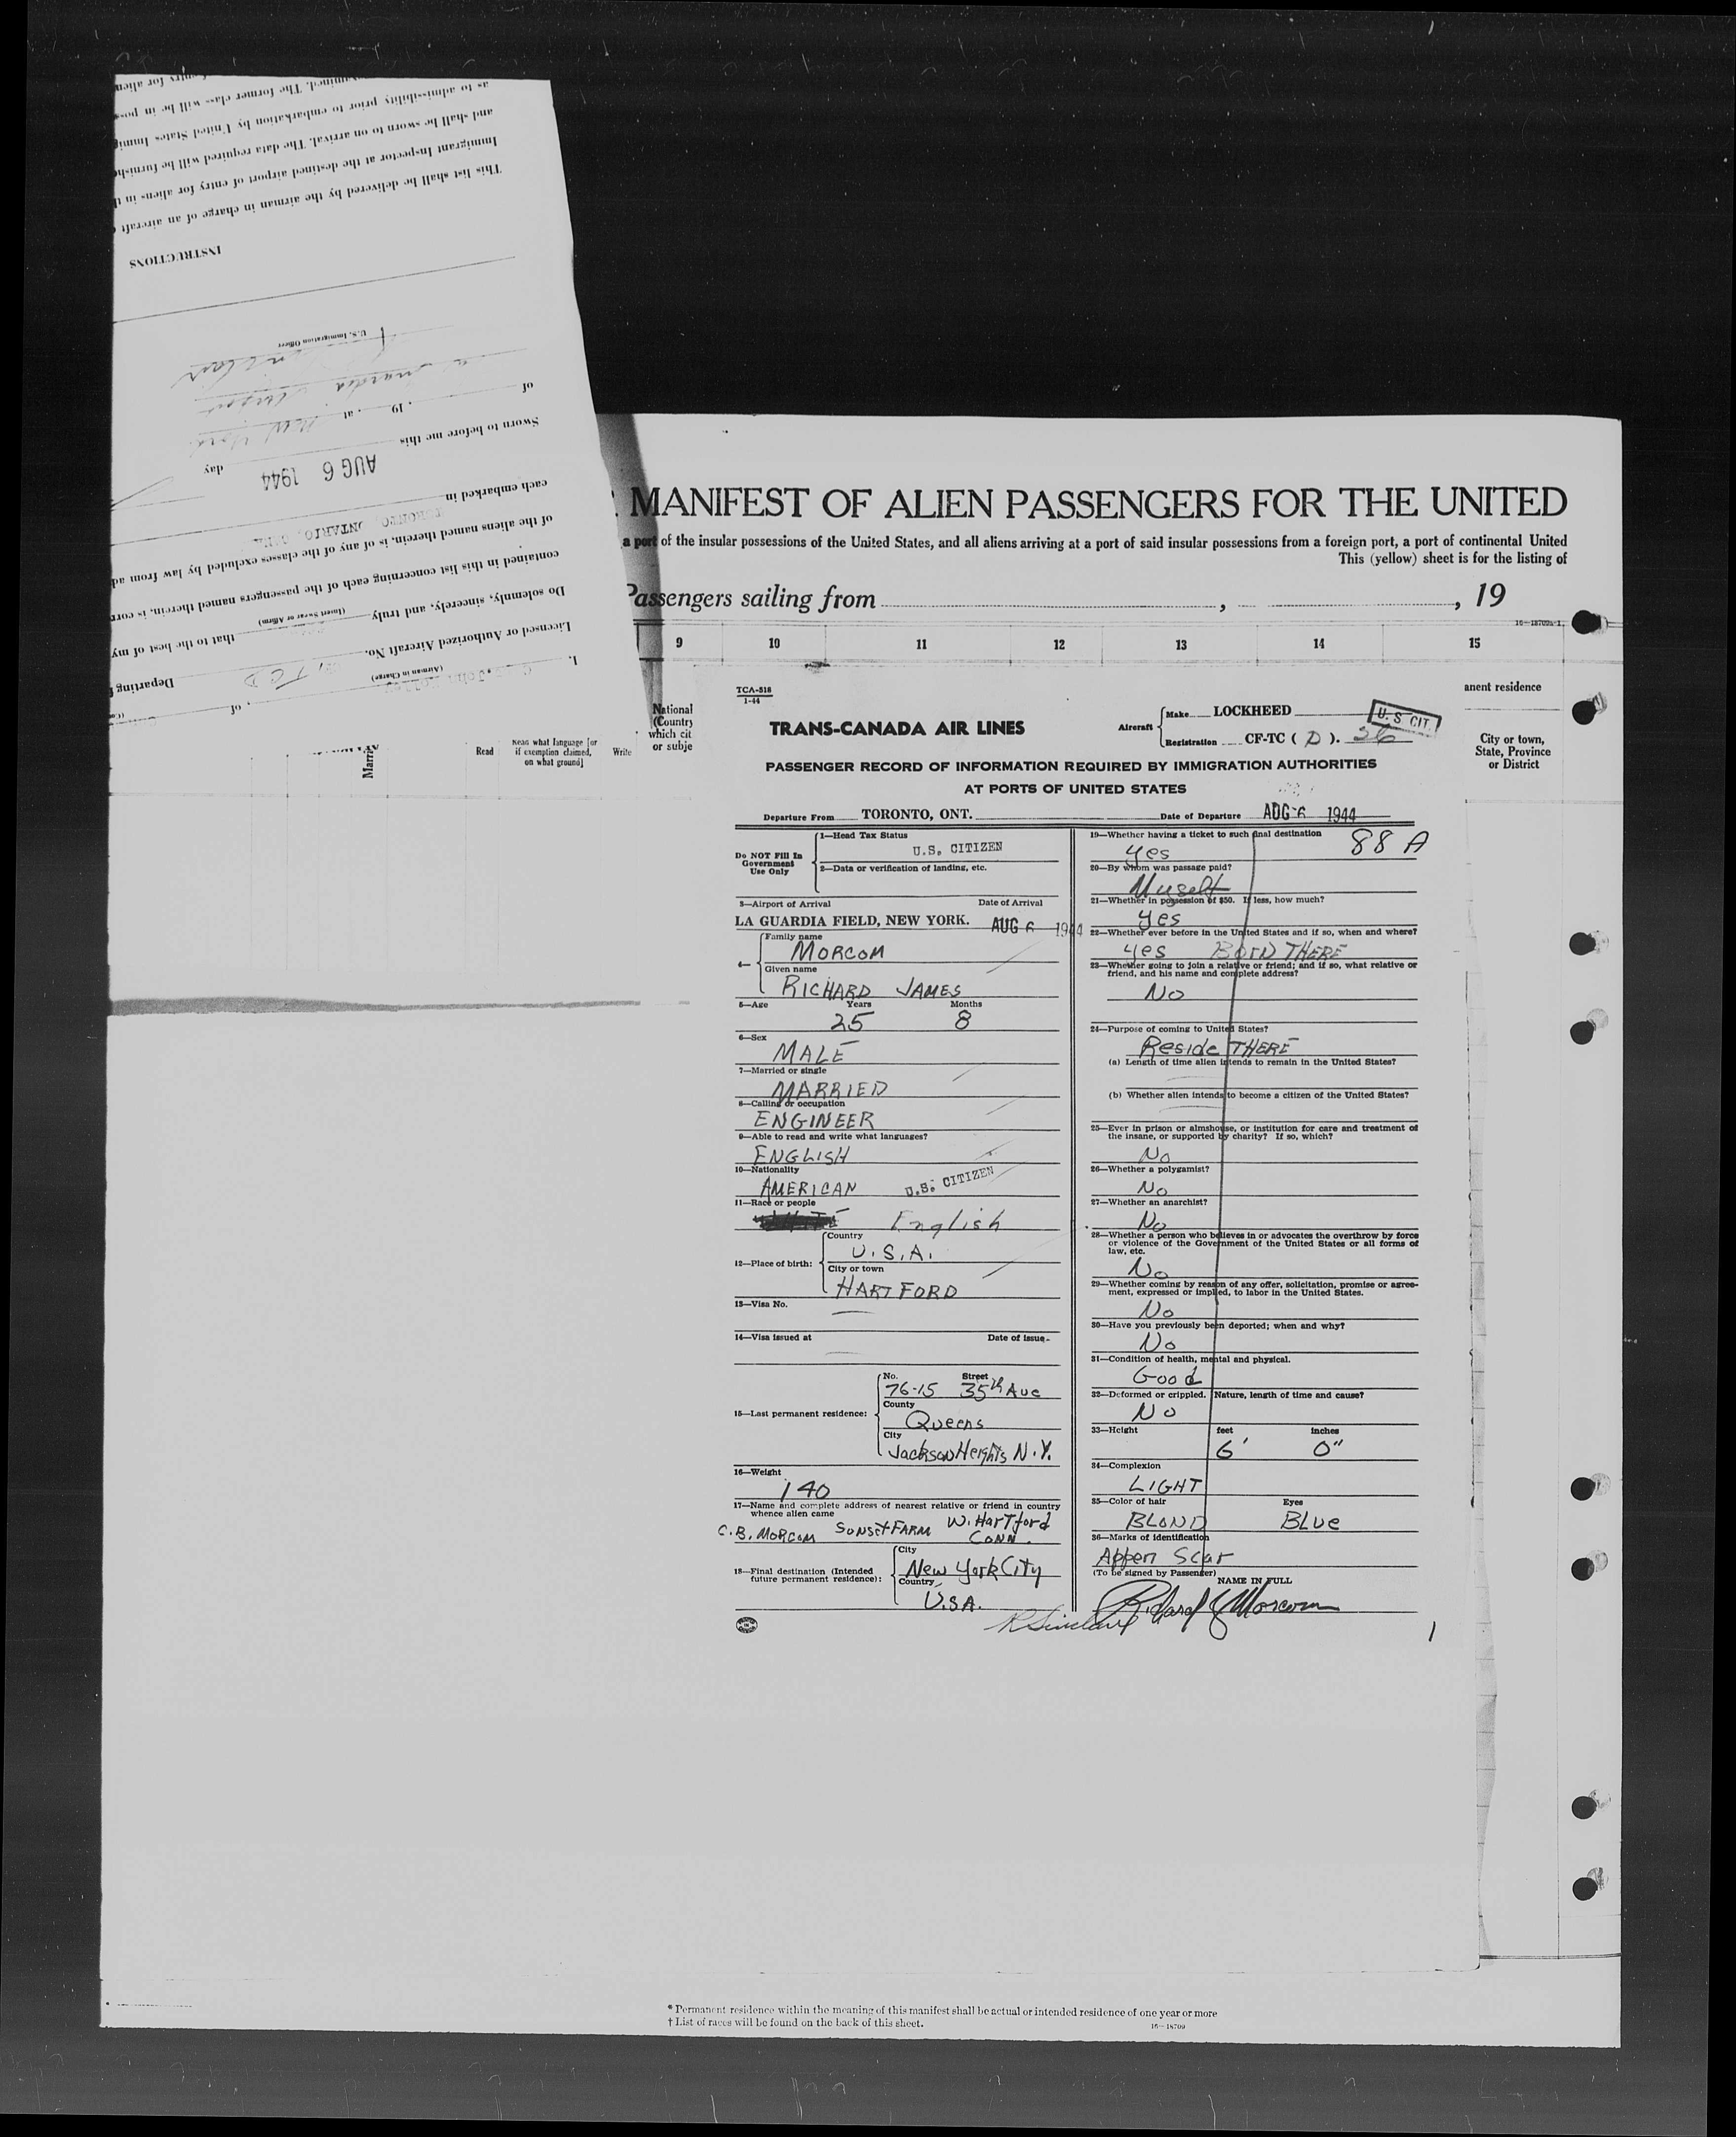 entry for alien
examined. The former class will be in pos
as to admissibility prior to embarkation by United States Immig
and shall be sworn to on arrival. The data required will be furnish
Immigrant Inspector at the destined airport of entry for aliens in
This list shall be delivered by the airman in charge of an aircraft
INSTRUCTIONS
U.S. Immigration Officer
of
, 19 , at
Sworn to before me this day
AUG 6 1944
each embarked in
TORONTO, ONTARIO,
of the aliens named therein, is of any of the classes excluded by law from ad
contained in this list concerning each of the passengers named therein, is corr
Do solemnly, sincerely, and truly that to the best of my
(Insert Swear or Affirm)
Licensed or Authorized Aircraft No. Departing
(Airman in Charge)
I, , of
Read
Read what language [or
if exemption claimed,
on what ground]
Write
MANIFEST OF ALIEN PASSENGERS FOR THE UNITED
a port of the insular possessions of the United States, and all aliens arriving at a port of said insular possessions from a foreign port, a port of continental United
This (yellow) sheet is for the listing of
Passengers sailing from , , 19
16—18709a-1
9 10 11 12 13 14 15
National
(Country
which cit
or subje
anent residence
City or town,
State, Province
or District
TCA-518
1-44
TRANS-CANADA AIR LINES
Aircraft
Make LOCKHEED
Registration CF-TC ( D ). 26
U.S CIT.
PASSENGER RECORD OF INFORMATION REQUIRED BY IMMIGRATION AUTHORITIES
AT PORTS OF UNITED STATES
Departure From TORONTO, ONT. Date of Departure AUG 6 1944
Do NOT Fill In
Government
Use Only
1—Head Tax Status
U.S. CITIZEN
2—Data or verification of landing, etc.
3—Airport of Arrival Date of Arrival
LA GUARDIA FIELD, NEW YORK. AUG 6 1944
4—
Family name
MORCOM
Given name
RICHARD JAMES
5—Age Years Months
25 8
6—Sex
MALE
7—Married or single
MARRIED
8—Calling or occupation
ENGINEER
9—Able to read and write what languages?
ENGLISH
10—Nationality
AMERICAN U.S. CITIZEN
11—Race or people
English
12—Place of birth:
Country
U.S.A.
City or town
HARTFORD
13—Visa No.
14—Visa issued at Date of issue
15—Last permanent residence:
No. Street
76-15 35th Ave
County
Queens
City
Jackson Heights N.Y.
16—Weight
140
17—Name and complete address of nearest relative or friend in country
whence alien came
C.B. MORCOM SUNSET FARM W. HARTford
CONN.
18—Final destination (Intended
future permanent residence):
City
New York City
Country
U.S.A.
19—Whether having a ticket to such final destination
Yes 88 A
20—By whom was passage paid?
Myself
21—Whether in possession of $50. If less, how much?
Yes
22—Whether ever before in the United States and if so, when and where?
Yes BORN THERE
23—Whether going to join a relative or friend; and if so, what relative or
friend, and his name and complete address?
No
24—Purpose of coming to United States?
Reside THERE
(a) Length of time alien intends to remain in the United States?
(b) Whether alien intends to become a citizen of the United States?
25—Ever in prison or almshouse, or institution for care and treatment of
the insane, or supported by charity? If so, which?
No
26—Whether a polygamist?
No
27—Whether an anarchist?
No
28—Whether a person who believes in or advocates the overthrow by force
or violence of the Government of the United States or all forms of
law, etc.
No
29—Whether coming by reason of any offer, solicitation, promise or agree-
ment, expressed or implied, to labor in the United States.
No
30—Have you previously been deported; when and why?
No
31—Condition of health, mental and physical.
Good
32—Deformed or crippled. Nature, length of time and cause?
No
33—Height feet inches
6' 0"
34—Complexion
LIGHT
35—Color of hair Eyes
BLOND BLUE
36—Marks of identification
Appen Scar
(To be signed by Passenger)
NAME IN FULL
Richard J Morcom
R Sinclair
1
* Permanent residence within the meaning of this manifest shall be actual or intended residence of one year or more
† List of races will be found on the back of this sheet.
16—18709